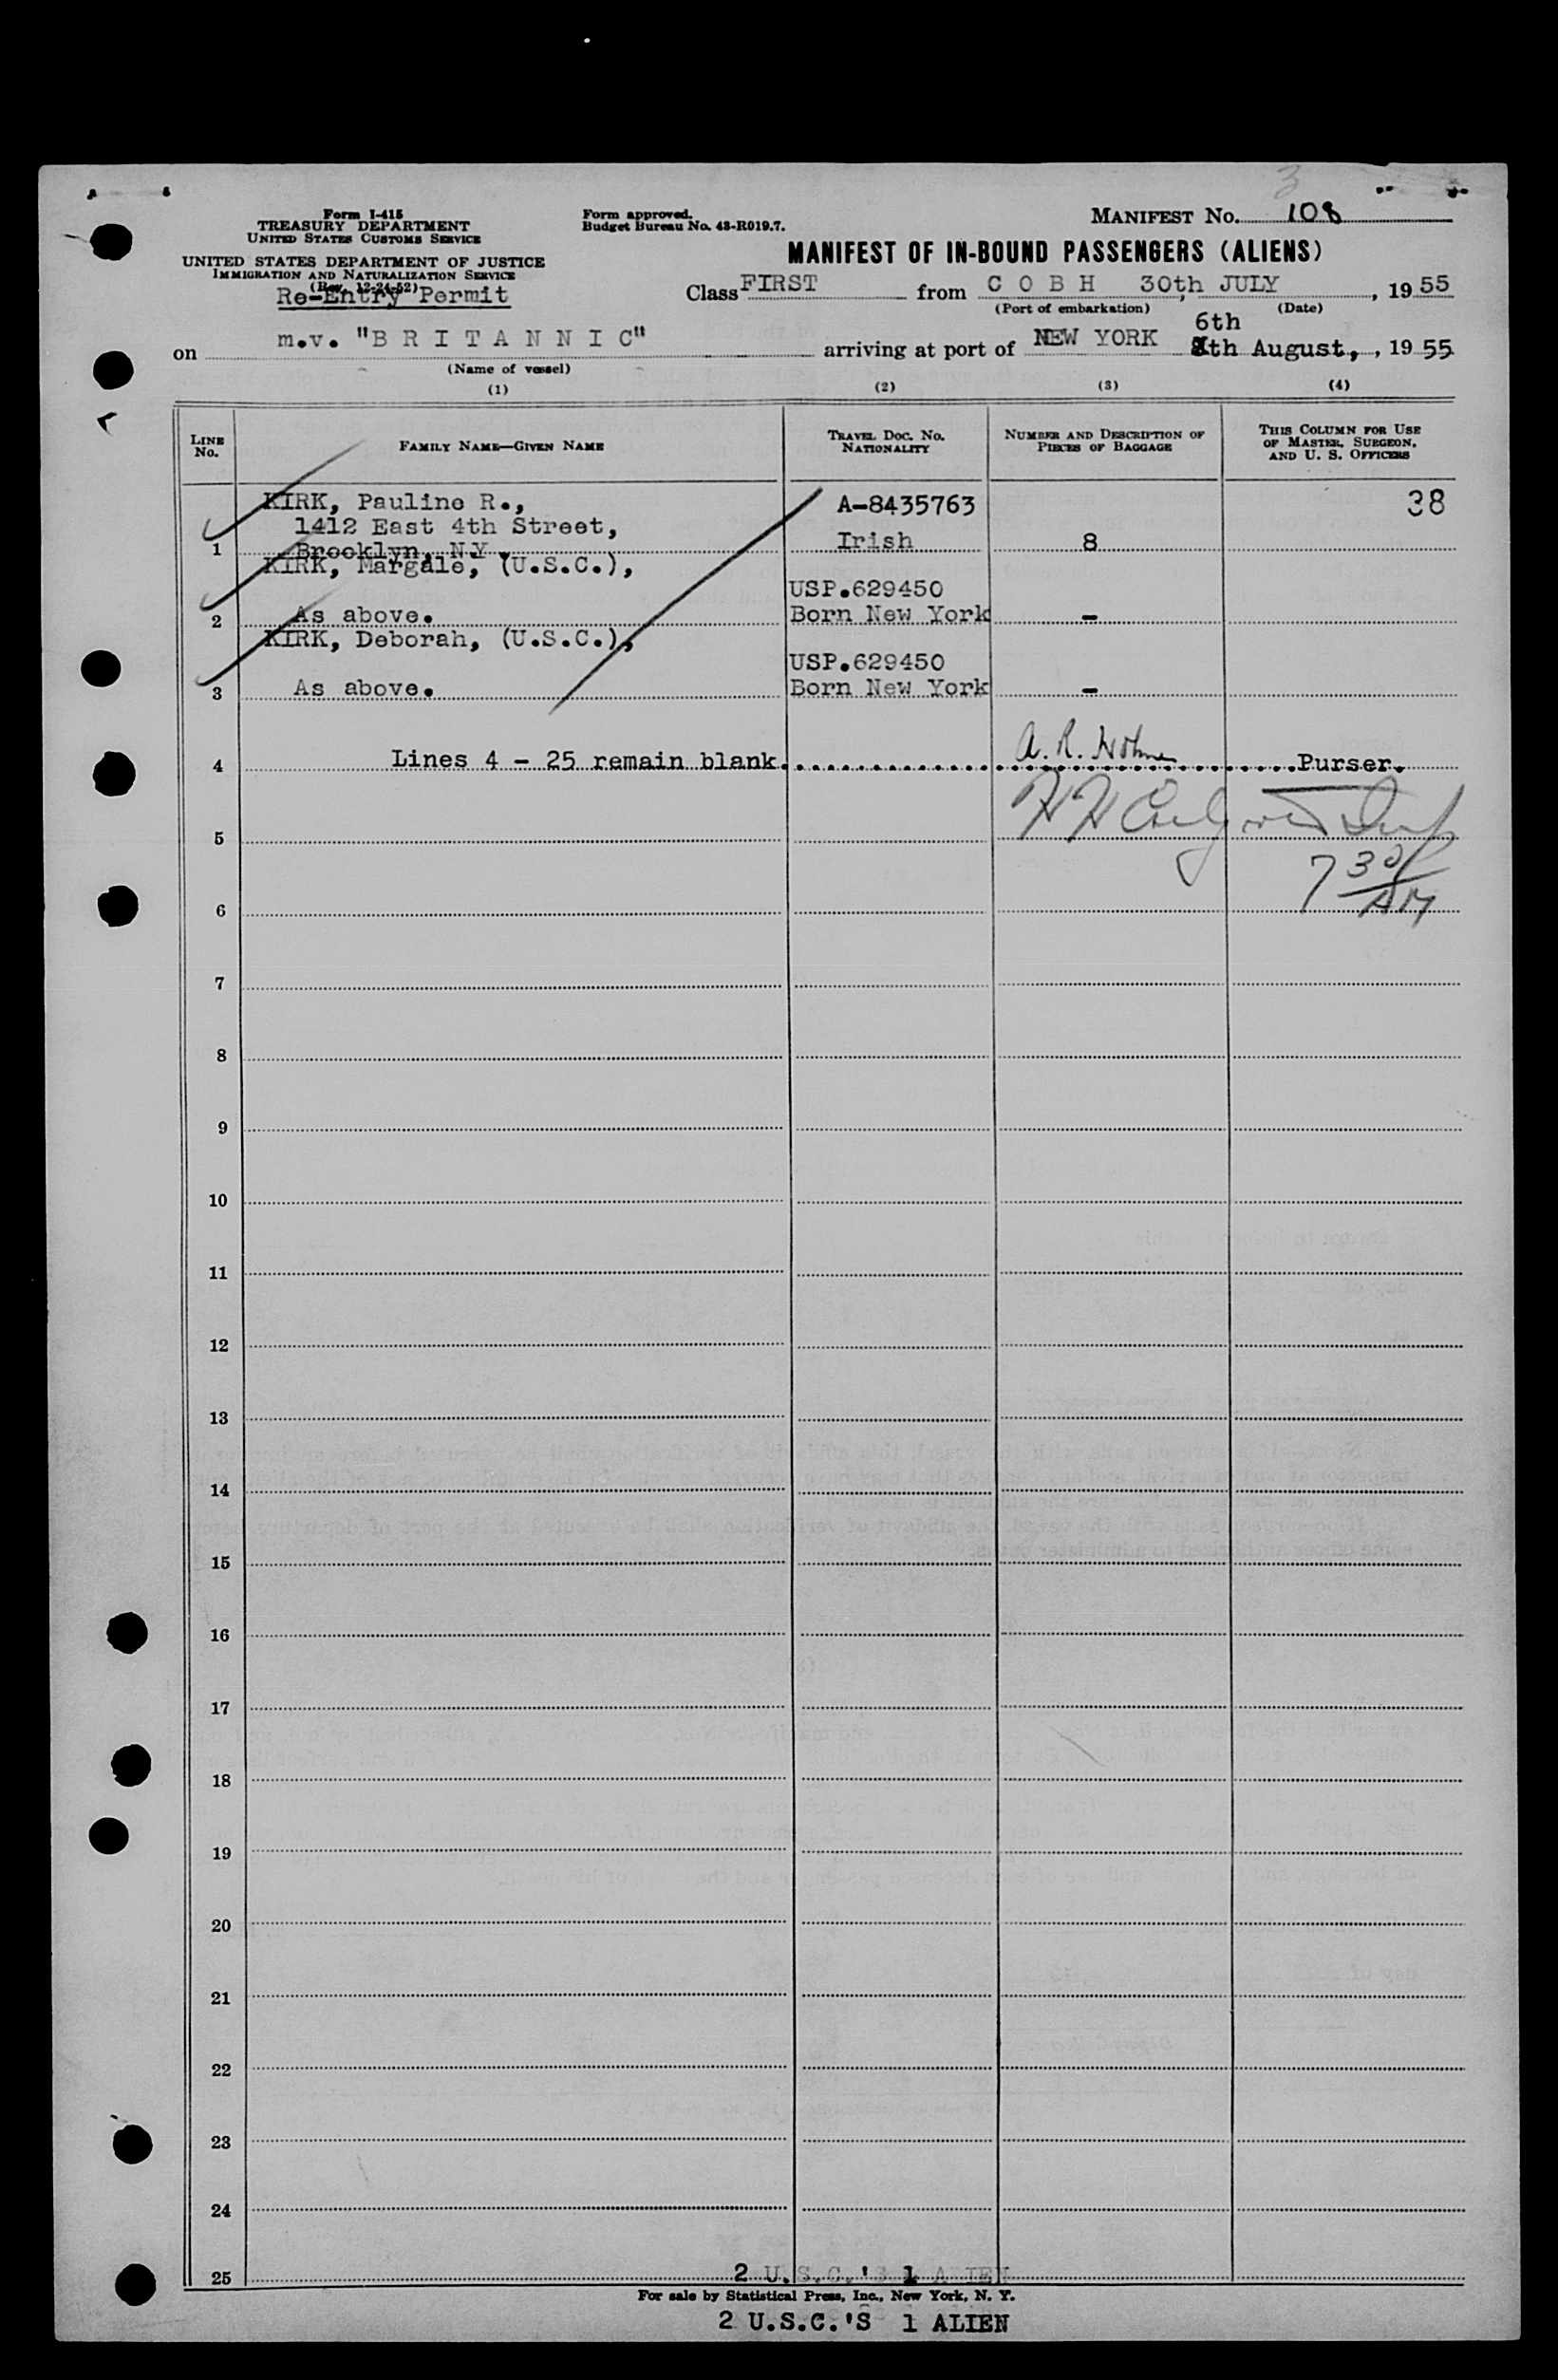 3
Form I-415
TREASURY DEPARTMENT
UNITED STATES CUSTOMS SERVICE
UNITED STATES DEPARTMENT OF JUSTICE
IMMIGRATION AND NATURALIZATION SERVICE
(Rev. 12-24-52)
Re-Entry Permit
Form approved.
Budget Bureau No. 43-R019.7.
MANIFEST NO. 108
MANIFEST OF IN-BOUND PASSENGERS (ALIENS)
Class FIRST from C O B H 30th, JULY, 19 55
(Port of embarkation) (Date)
6th
on m.v. "B R I T A N N I C" arriving at port of NEW YORK th August,, 19 55
(Name of vessel)
(1) (2) (3) (4)
LINE NO. FAMILY NAME—GIVEN NAME TRAVEL DOC. NO. NATIONALITY NUMBER AND DESCRIPTION OF PIECES OF BAGGAGE THIS COLUMN FOR USE OF MASTER, SURGEON, AND U. S. OFFICERS
KIRK, Pauline R., A-8435763 38
1412 East 4th Street,
1 Brooklyn, N.Y. Irish 8
KIRK, Margale, (U.S.C.),
USP.629450
2 As above. Born New York -
KIRK, Deborah, (U.S.C.),
USP.629450
3 As above. Born New York -
4 Lines 4 - 25 remain blank. A. R. Purser.
5
7 30
AM
6
7
8
9
10
11
12
13
14
15
16
17
18
19
20
21
22
23
24
25 2 U.S.C.'S 1 ALIEN
For sale by Statistical Press, Inc., New York, N. Y.
2 U.S.C.'S 1 ALIEN